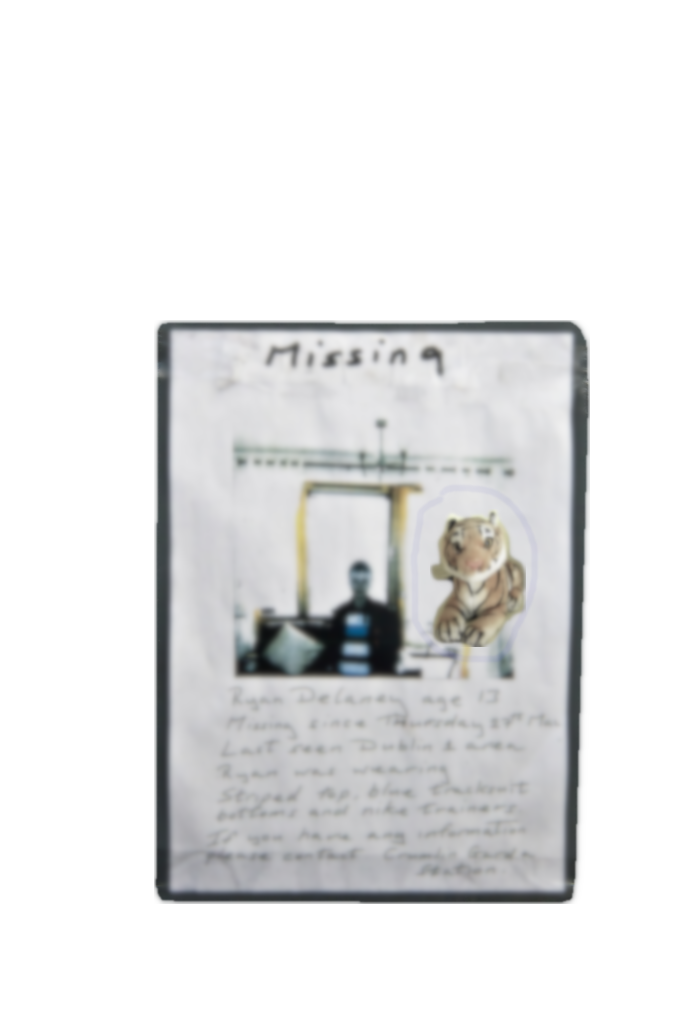 Missing
Ryan Delaney age 13
Missing since Thursday Mar
Last seen Dublin 2 area
Ryan was wearing
Striped top, blue tracksuit
bottoms and nike trainers.
If you have any information
please contact Crumlin Garda
Station.